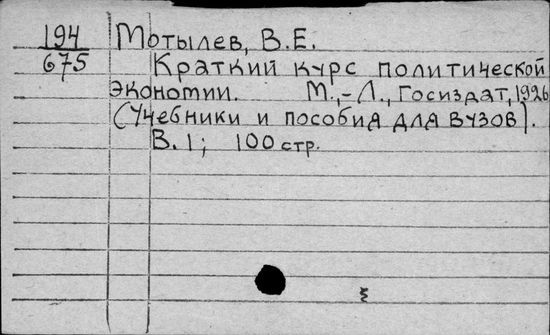 194 Мотылев, В.Е.
675 Краткий курс политической
экономии. М.,-Л., Госиздат, 1926
(Учебники и пособия для вузов).
В. 1; 100 стр.